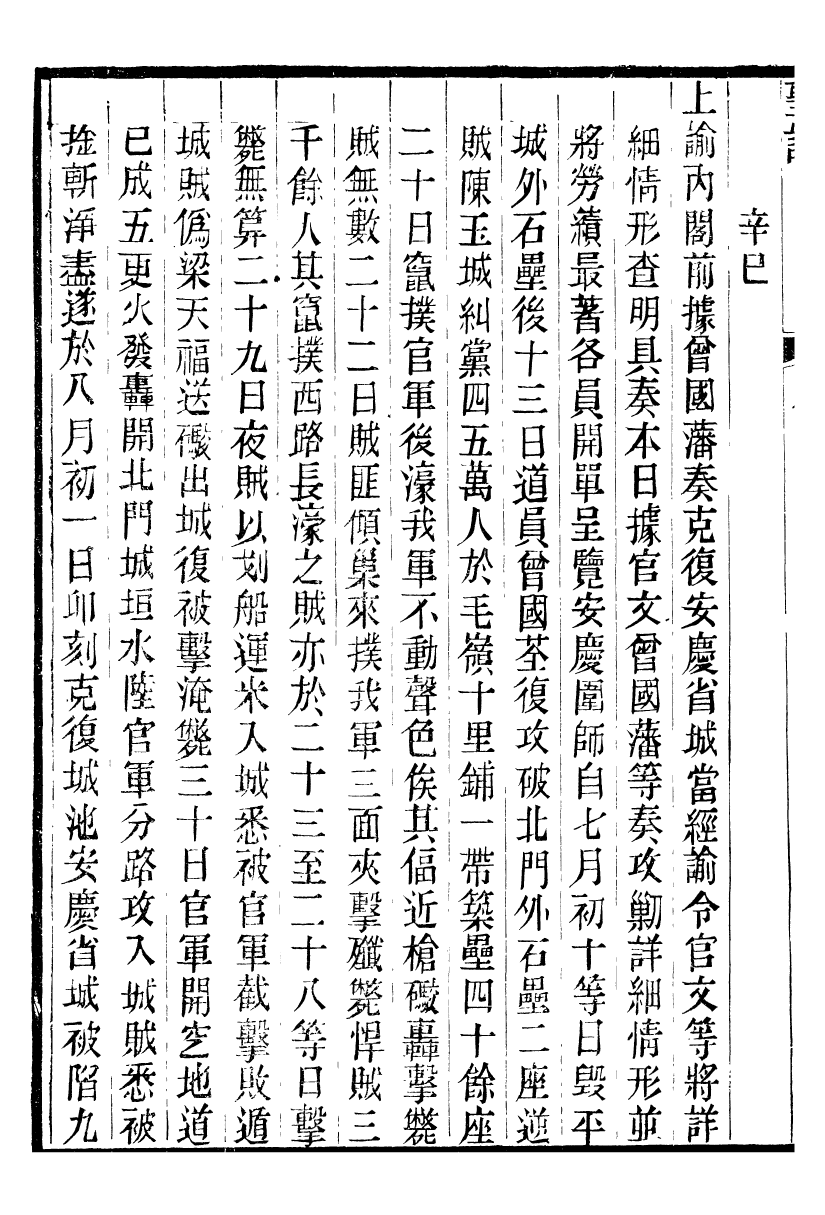 辛巳
上諭內閣前據曾國藩奏克復安慶省城當經諭令官文等將詳
細情形查明具奏本日據官文曾國藩等奏攻勦詳細情形並
將勞績最著各員開單呈覽安慶圍師自七月初十等日毀平
城外石壘後十三日道員曾國荃復攻破北門外石壘二座逆
賊陳玉城糾黨四五萬人於毛嶺十里鋪一帶築壘四十餘座
二十日竄撲官軍後濠我軍不動聲色俟其偪近槍礮轟擊斃
賊無數二十二日賊匪傾巢來撲我軍三面夾擊殲斃悍賊三
千餘人其竄撲西路長濠之賊亦於二十三至二十八等日擊
斃無算二十九日夜賊以划船運米入城悉被官軍截擊敗遁
城賊偽梁天福送礮出城復被擊淹斃三十日官軍開空地道
已成五更火發轟開北門城垣水陸官軍分路攻入城賊悉被
擒斬淨盡遂於八月初一日卯刻克復城池安慶省城被陷九